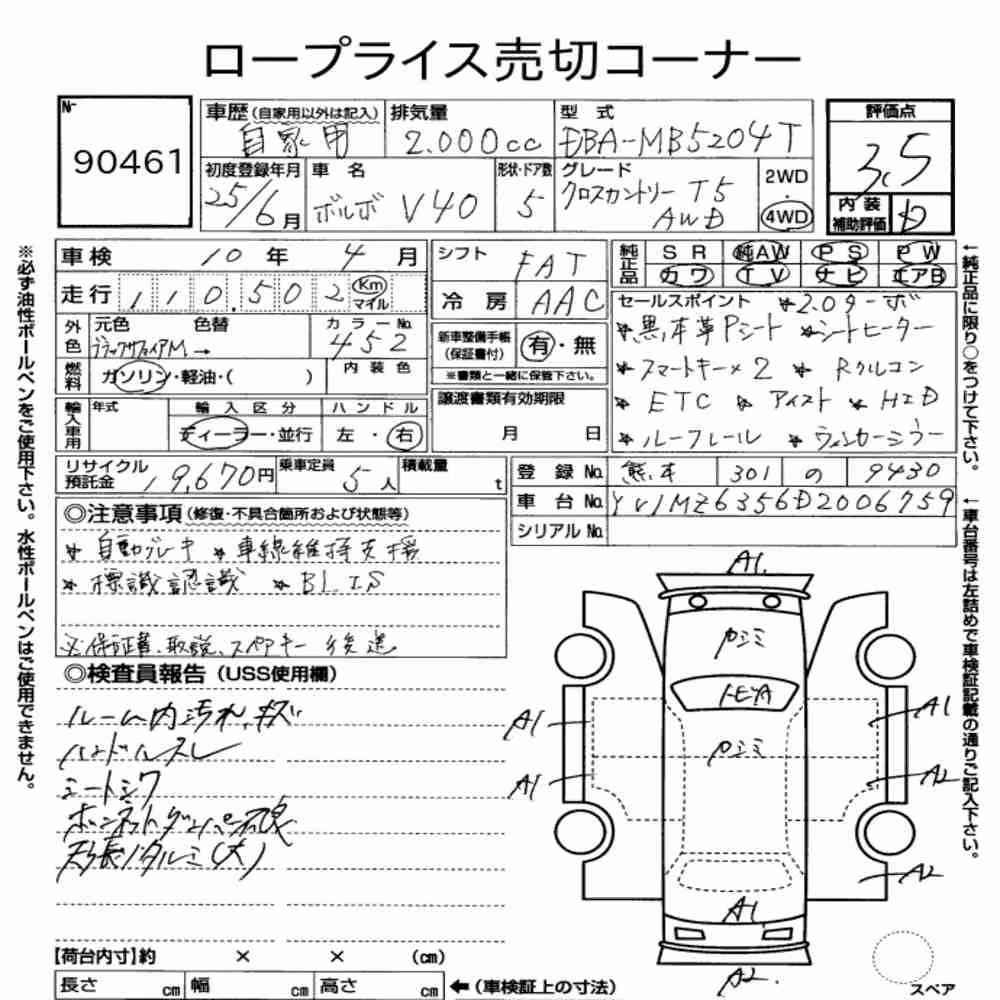 ロープライス売切コーナー
№ 90461
車歴(自家用以外は記入) 自家用
排気量 2.000cc
型式 EBA-MB5204T
評価点 3.5
初度登録年月 25/6月
車名 ボルボ V40
形状・ドア数 5
グレード クロスカントリー T5 AWD
2WD・4WD
内装補助評価 D
車検 10年 4月
シフト FAT
純正品 SR 純AW PS PW
カワ TV ナビ エアB
走行 110.502 Km マイル
冷房 AAC
セールスポイント ★2.0ターボ
★黒本革Pシート ★シートヒーター
★スマートキー×2 ★Rクルコン
★ETC ★アイスト ★HID
★ルーフレール ★ウィンカーミラー
外色 元色 色替 ブラックサファイアM→
カラーNo. 452
新車整備手帳(保証書付) 有・無
※書類と一緒に保管下さい。
燃料 ガソリン・軽油・( )
内装色
輸入車用 年式
輸入区分 ディーラー・並行
ハンドル 左・右
譲渡書類有効期限 月 日
リサイクル預託金 19,670円
乗車定員 5人
積載量 t
登録No. 熊本 301 の 9430
車台No. YV1MZ6356D2006759
シリアルNo.
◎注意事項(修復・不具合箇所および状態等)
★自動ブレーキ ★車線維持支援
★標識認識 ★BLIS
※保証書、取説、スペアキー後送
◎検査員報告(USS使用欄)
ルーム内汚れ、キズ
ハンドルスレ
シートシワ
ボンネットダンパー不良
天張りタルミ(大)
A1.
クスミ
トビA
クスミ
A1
A1
A1
A2
A2
A1
A2.
スペア
【荷台内寸】約 × × (cm)
長さ cm 幅 cm 高さ cm ←(車検証上の寸法)
※必ず油性ボールペンをご使用下さい。水性ボールペンはご使用できません。
←純正品に限り○をつけて下さい。
←車台番号は左詰めで車検証記載の通りご記入下さい。